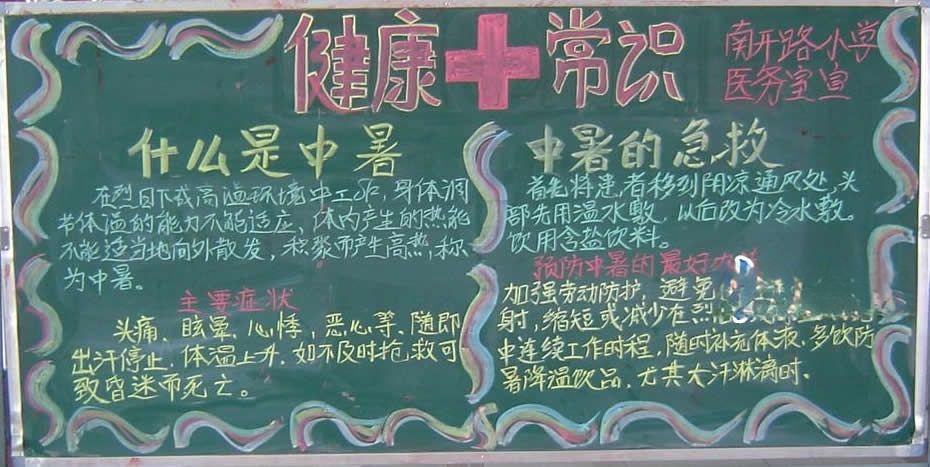 健康 常识
南开路小学
医务室宣
什么是中暑
在烈日下或高温环境中工作,身体调
节体温的能力不能适应,体内产生的热能
不能适当地向外散发,积聚而产生高热,称
为中暑。
主要症状
头痛、眩晕、心悸,恶心等、随即
出汗停止,体温上升,如不及时抢救可
致昏迷而死亡。
中暑的急救
首先将患者移到阴凉通风处,头
部先用温水敷,以后改为冷水敷。
饮用含盐饮料。
预防中暑的最好办
加强劳动防护,避免
射,缩短或减少在烈
中连续工作时程,随时补充体液,多饮防
暑降温饮品,尤其大汗淋漓时.